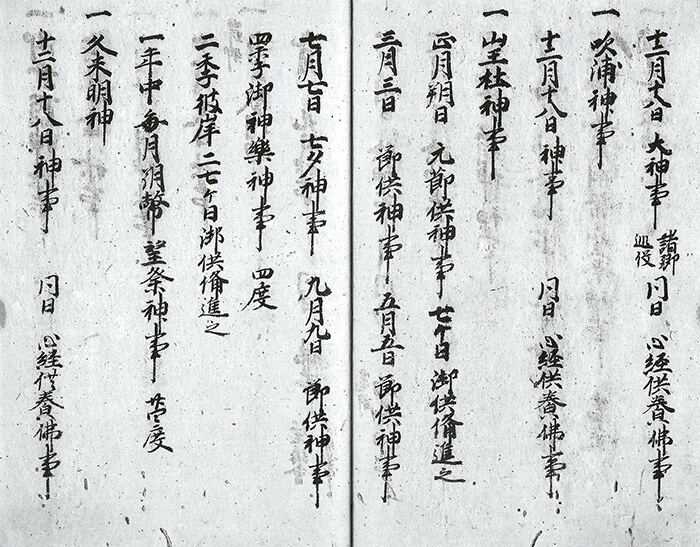 十二月十八日 大神事 諸郷巡役 同日 心経供養佛事
一 吹浦神事
十二月十八日 神事 同日 心経供養佛事
一 山王社神事
正月朔日 元節供神事 七ケ日御供備進之
三月三日 節供神事 五月五日 節供神事
七月七日 七夕神事 九月九日 節供神事
四季御神樂神事 四度
二季彼岸 二七ケ日御供備進之
一年中毎月朔幣 望祭神事 廿四度
一 久末明神
十二月十八日神事 同日 心経供養佛事